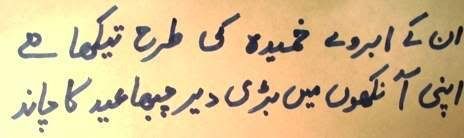 ان کے ابروے خمیدہ کی طرح تیکھا ہے
اپنی آنکھوں میں بڑی دیر چبھا عید کا چاند